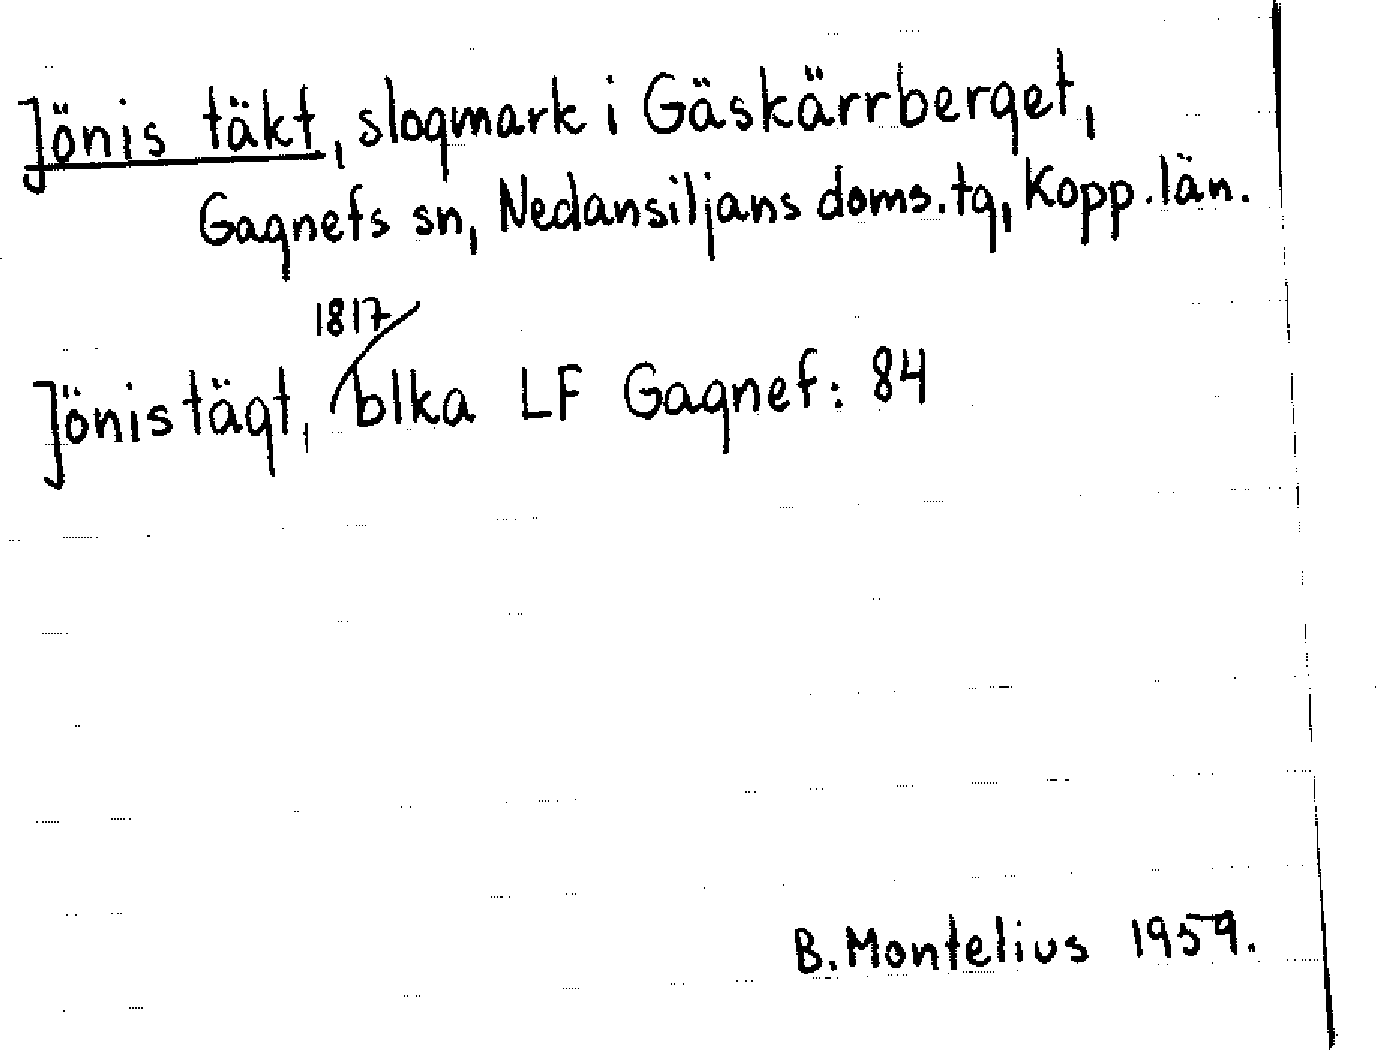 Jönis täkt, slogmark i Gäskärrberget,
Gagnefs sn, Nedansiljans doms.tg, Kopp.län.
1817
Jönis tägt, blka LF Gagnef: 84
B. Montelius 1959.